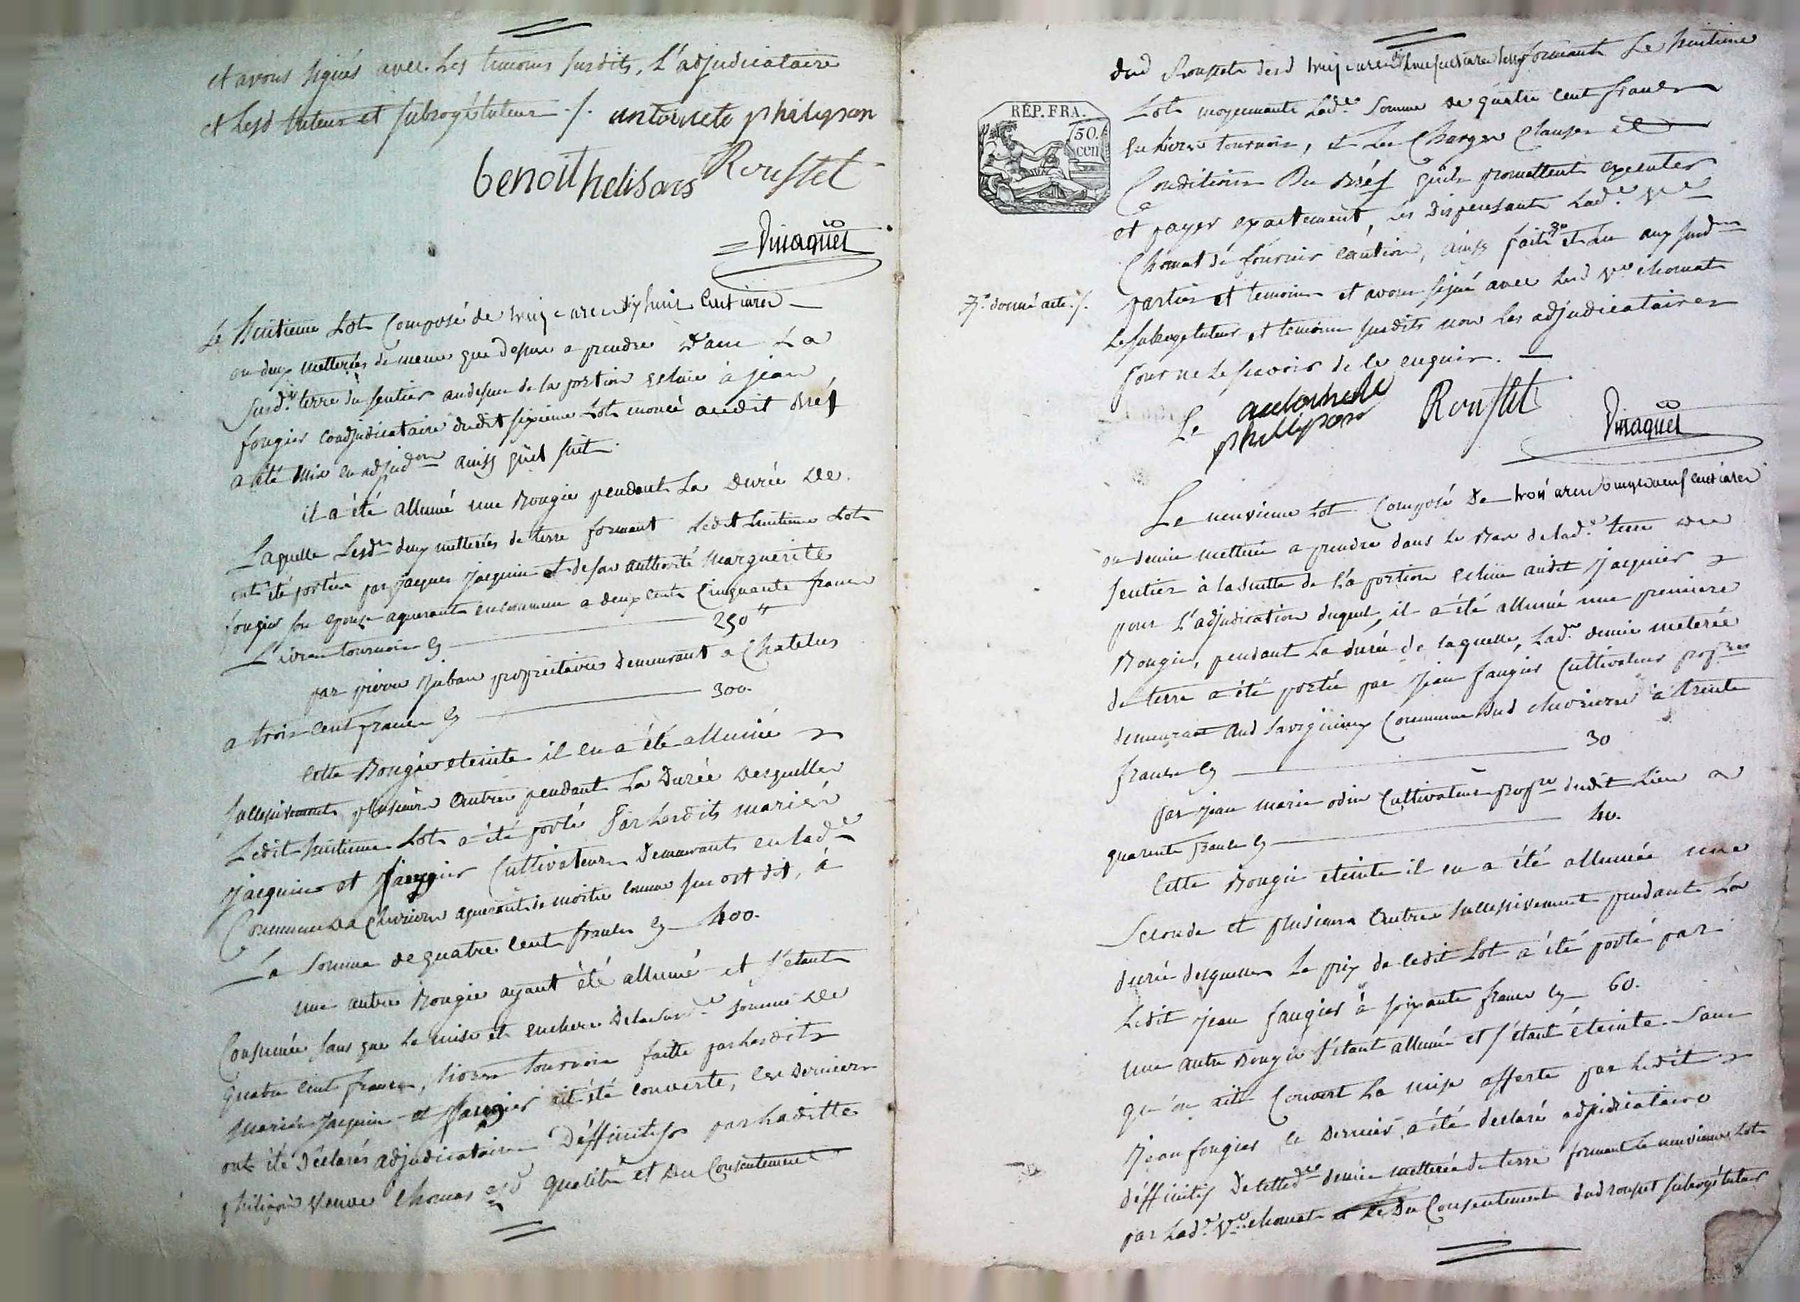 et avons signés avec les temoins susdits, L'adjudicataire
et lesd tuteur et subrogétuteur ./. antoinete philipon
benoit helisais Rousset
Dinaquet
Le huitieme Lot Composé de treize ares dix huit Centiares
ou deux metterées de meme que dessus a prendre dans La
susd.e terre du sentier audessus de la portion echue à jean
fougier coadjudicataire dudit sixieme Lot enoncé audit bref
a été mis en adjudon ainsy qu'il suit.
il a été allumé une Bougie pendant La Durée de
Laquelle Lesd. deux metterées de terre formant Ledit huitieme Lot
ont été portées par jaques jacquier et de son authorité marguerite
fougier son epouse aquerants en commun a deux cents Cinquante francs
Livres tournois Cy 250tt
par pierre juban propriétaires demeurant a Chatelus
a trois cent francs Cy 300.
Cette Bougie eteinte il en a été allumé
successivement plusieurs autres pendant La Durée Desquelles
Ledit huitieme Lot a été porté Par Lesdits mariés
jacquier et faugier Cultivateurs Demeurants en lad.e
Commune de Chevrieres aquerants de moitié comme sus est dit, à
La Somme de quatre cent francs Cy 400.
une autre Bougie ayant été allumé et s'etant
Consumée sans que la mise et enchere de la susd.e somme de
quatre cent francs, Livres tournois faitte par Lesdits
mariés jacquier et faugier ait été couverte, ces Derniers
ont été Déclarés adjudicataires Déffinitifs par Laditte
philipon veuve Chomat esd qualités et Du Consentement
dud Rousset desd treize ares dix huit centiares formant Le huitieme
REP. FRA.
50. cen
Lot moyennant Lad.e Somme de quatre cent francs
ou livres tournois, et Les Charges Clauses et
Conditions Du Bref qu'ils promettent executer
et payer exactement, Les dispensant Lad.e Ve
Chomat de fournir caution, ainsy fait et lu aux susd
parties et temoins et avons signé avec Lad Ve chomat
Le subrogétuteur et temoins susdits non Les adjudicataires
pour ne Le scavoir de ce enquis.
donné acte ./.
Le antoinete philipon Rousset
Dinaquet
Le neuvieme Lot Composé De trois ares onze neuf centiares
ou demie metterée a prendre dans Le Bas de lad.e terre du
sentier à la suitte de La portion echue audit jacquier
pour L'adjudication duquel, il a été allumé une premiere
Bougie, pendant La durée de laquelle, Lad.e demie meterée
de terre a été portée par jean faugier Cultivateur propre
demeurant aud Savigneux Commune dud chevrieres à trente
francs Cy 30
par jean marie odin Cultivateur propre dudit Lieu a
quarente francs Cy 40.
Cette Bougie eteinte il en a été allumée une
Seconde et plusieurs autres successivement pendant La
durée desquelles Le prix de Cedit Lot a été porté par
Ledit jean faugier à soixante francs Cy 60.
une autre Bougie s'étant allumé et s'étant éteinte Sans
qu'on ait Couvert La mise offerte par Ledit
jean fougier ce Dernier a été declaré adjudicataire
déffinitif de cette d.e demie metterée de terre formant Le neuvieme Lot
par Lad.e Ve chomat Du Consentement dud rousset subrogétuteur